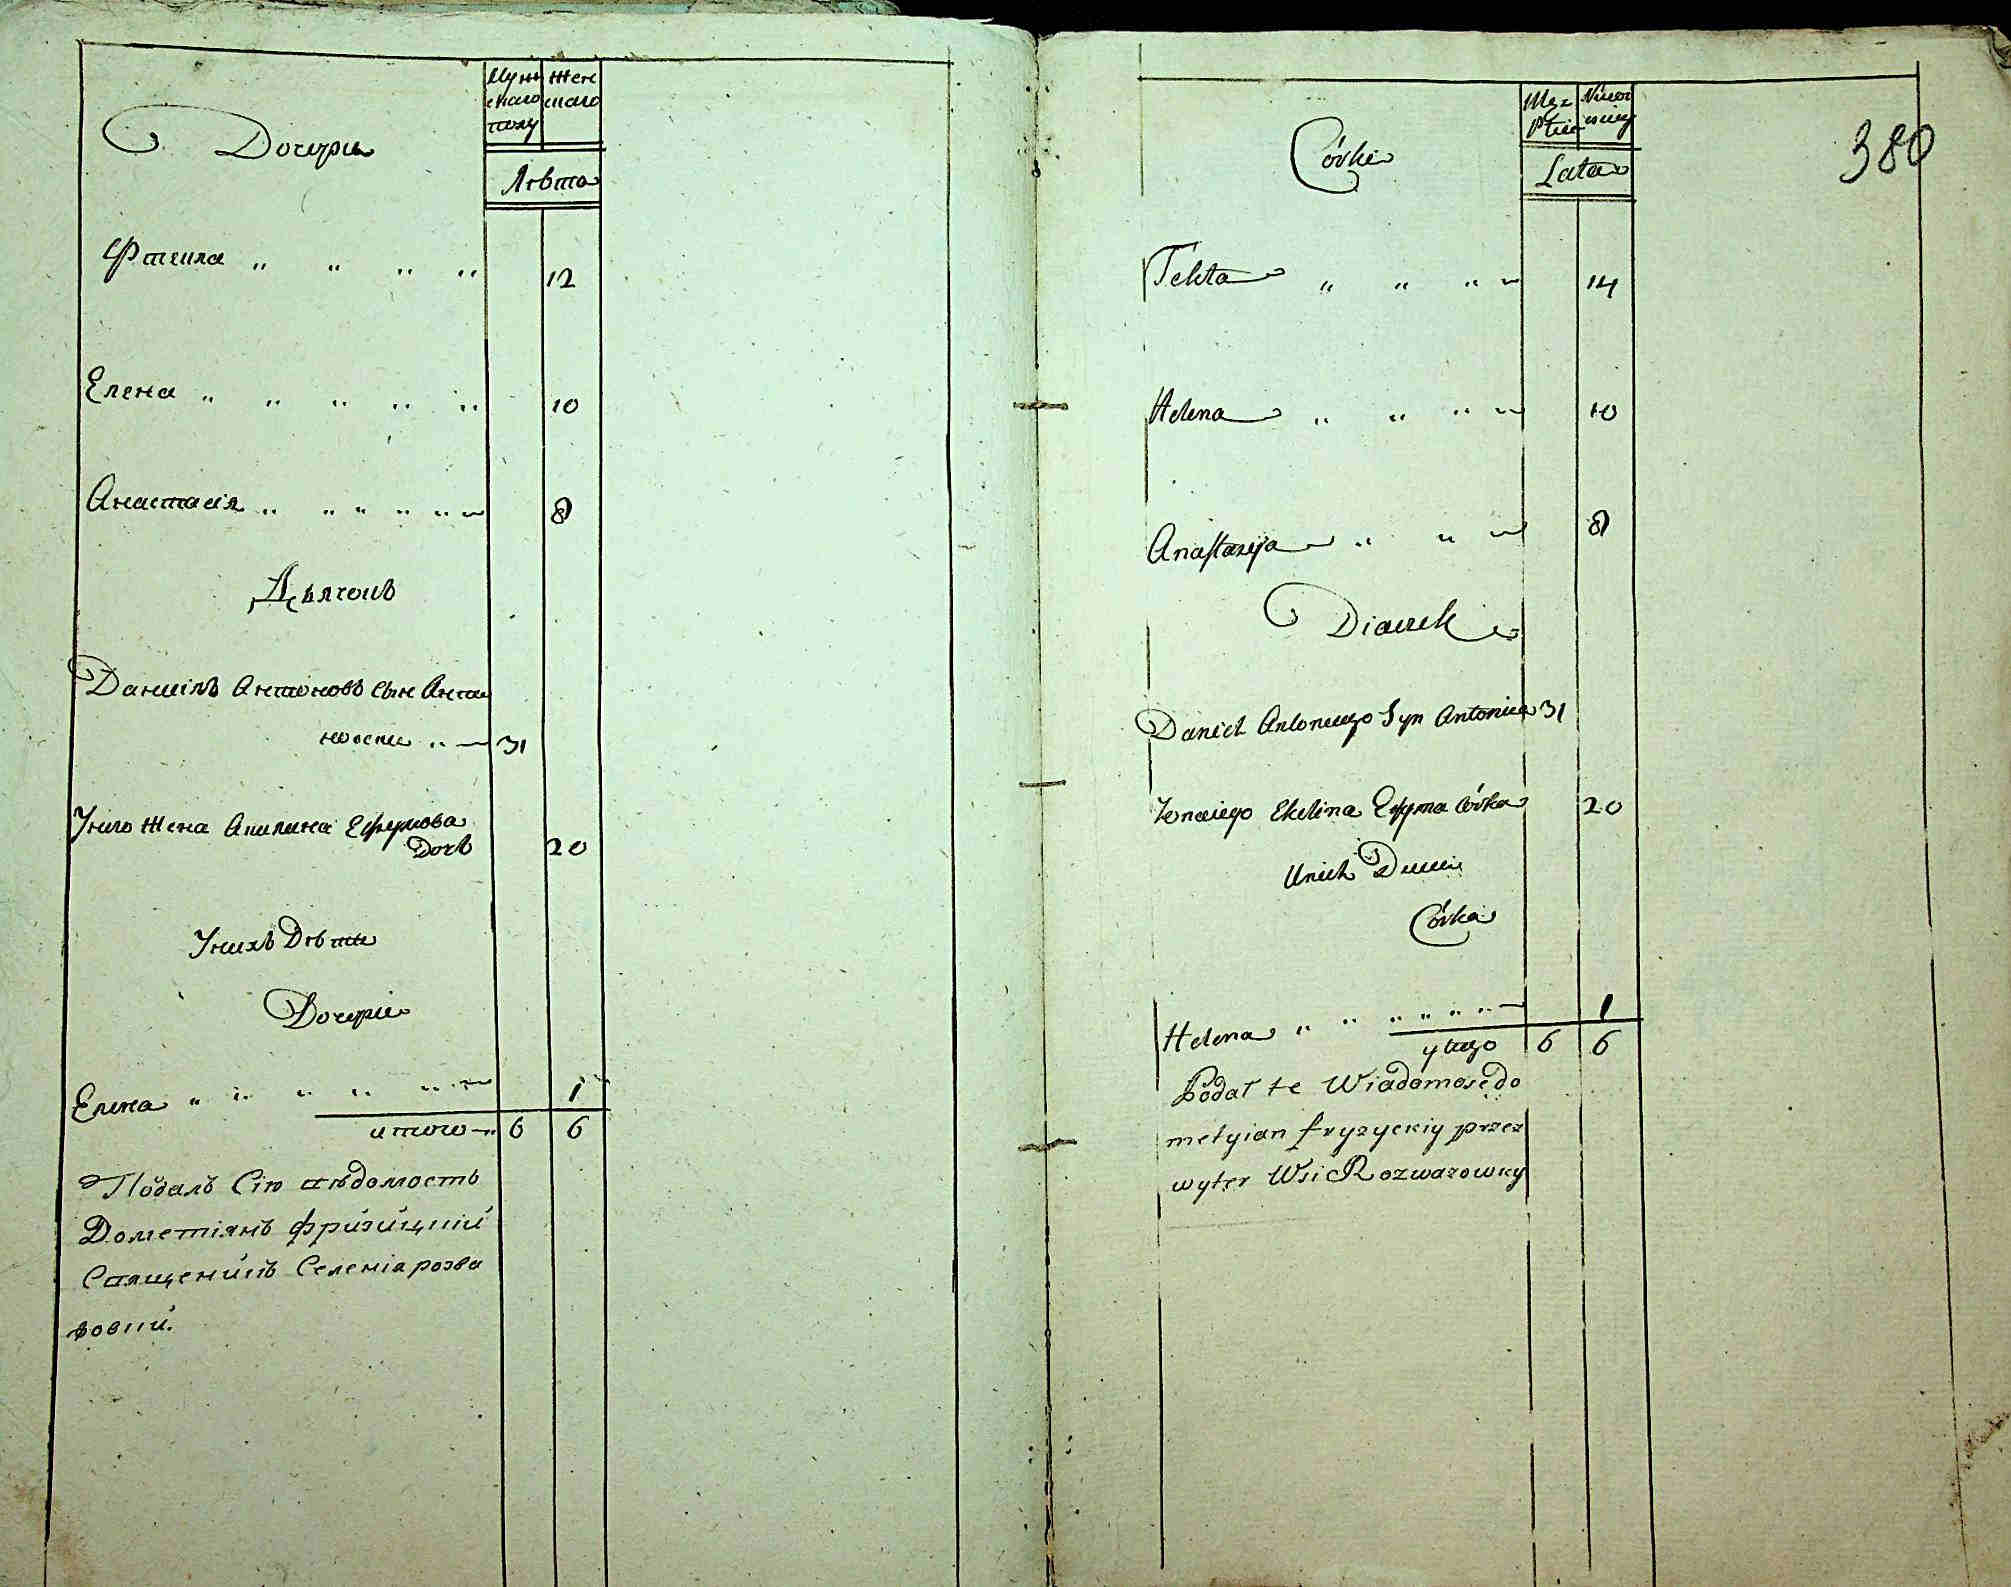 Муж Жен
скаго скаго
полу
Дочери
Лѣта
Фтекла 12
Елена 10
Анастасія 8
Дьячокъ
Даниілъ Антоновъ сын Анто
31
Унего жена Акилина Ефимова
Дочь 20
Унихъ Дѣти
Дочери
Елена 1
итого 6 6
Подалъ Сію вѣдомость
Дометіянъ фризицкій
Священикъ Селенія розва
ковки.
380
Córki
Lata
Tekla 14
Helena 10
Anastazija 8
Diaczek
Daniel Antoniego Syn Antonien 31
Żona iego Ekelina Efyma Córka 20
Unich Dzieci
Córka
Helena 1
ytego 6 6
Podał te Wiadomość do
metyian fryzyckiy przez
wyter Wsi Rozwazowky